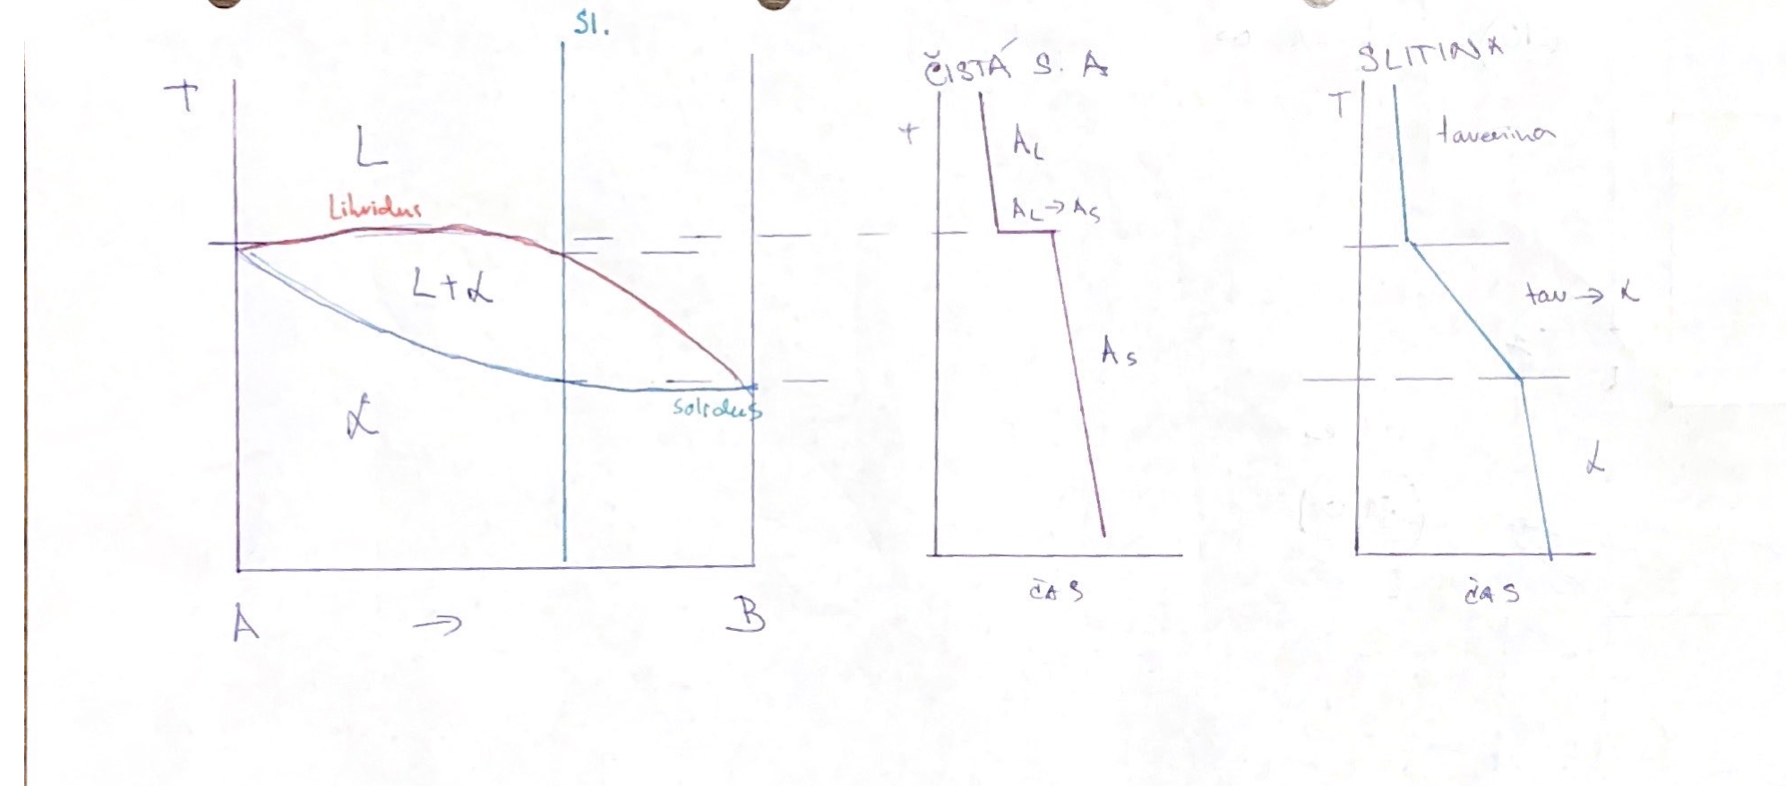 Sl.
T
L
Likvidus
L+α
α
solidus
A → B
ČISTÁ S. A
T
AL
AL → AS
AS
ČAS
SLITINA
T
tavenina
tav → α
α
ČAS